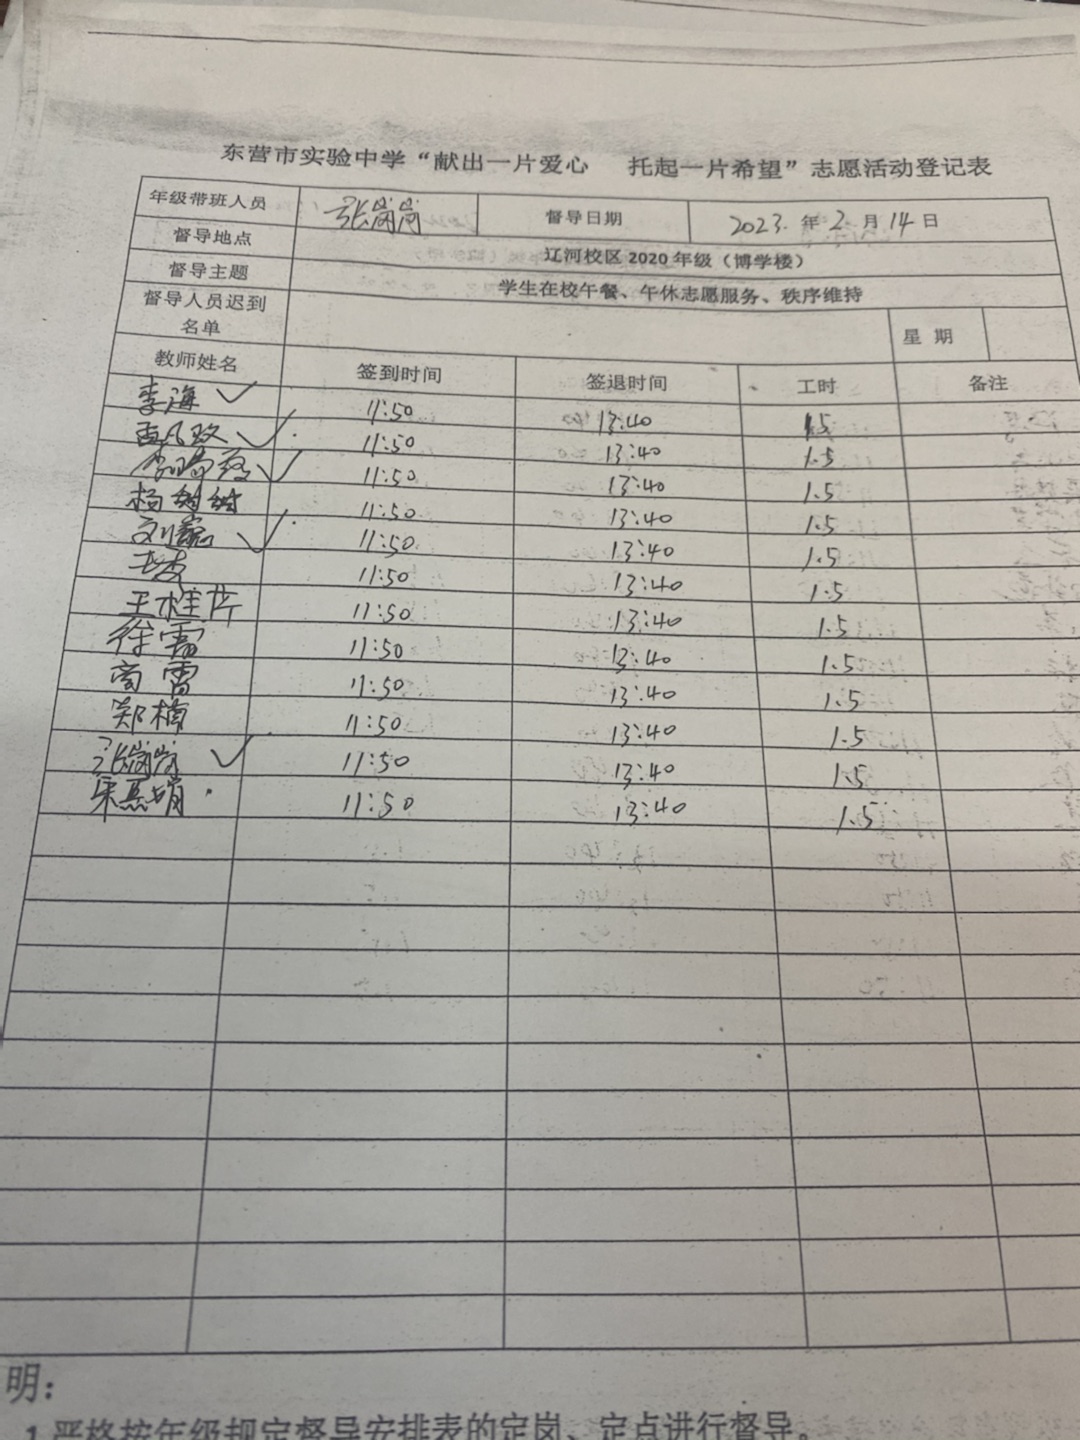 东营市实验中学“献出一片爱心 托起一片希望”志愿活动登记表
年级带班人员 张岗岗 督导日期 2023.年2月14日
督导地点 辽河校区2020年级（博学楼）
督导主题 学生在校午餐、午休志愿服务、秩序维持
督导人员迟到名单 星 期
教师姓名 签到时间 签退时间 工时 备注
李海 ✓ 11:50 13:40 1.5
✓ 11:50 13:40 1.5
✓ 11:50 13:40 1.5
杨树树 11:50 13:40 1.5
✓ 11:50 13:40 1.5
11:50 13:40 1.5
王桂芹 11:50 13:40 1.5
徐霞 11:50 13:40 1.5
商雷 11:50 13:40 1.5
郑楠 11:50 13:40 1.5
张岗岗 ✓ 11:50 13:40 1.5
11:50 13:40 1.5
明：
1.严格按年级规定督导安排表的定岗、定点进行督导。